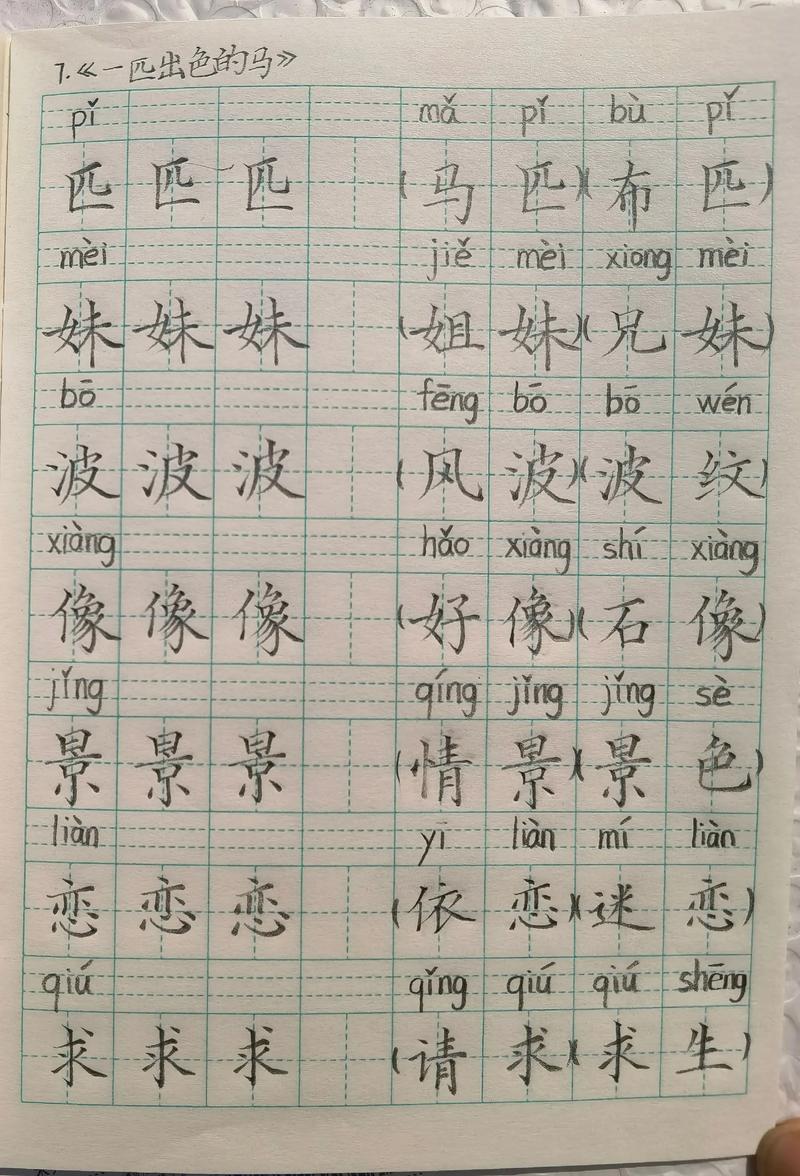 7.《一匹出色的马》
pǐ mǎ pǐ bù pǐ
匹 匹 匹 (马 匹)(布 匹)
mèi jiě mèi xiong mèi
妹 妹 妹 (姐 妹)(兄 妹)
bō fēng bō bō wén
波 波 波 (风 波)(波 纹)
xiàng hǎo xiàng shí xiàng
像 像 像 (好 像)(石 像)
jǐng qíng jǐng jǐng sè
景 景 景 (情 景)(景 色)
liàn yī liàn mí liàn
恋 恋 恋 (依 恋)(迷 恋)
qiú qǐng qiú qiú shēng
求 求 求 (请 求)(求 生)